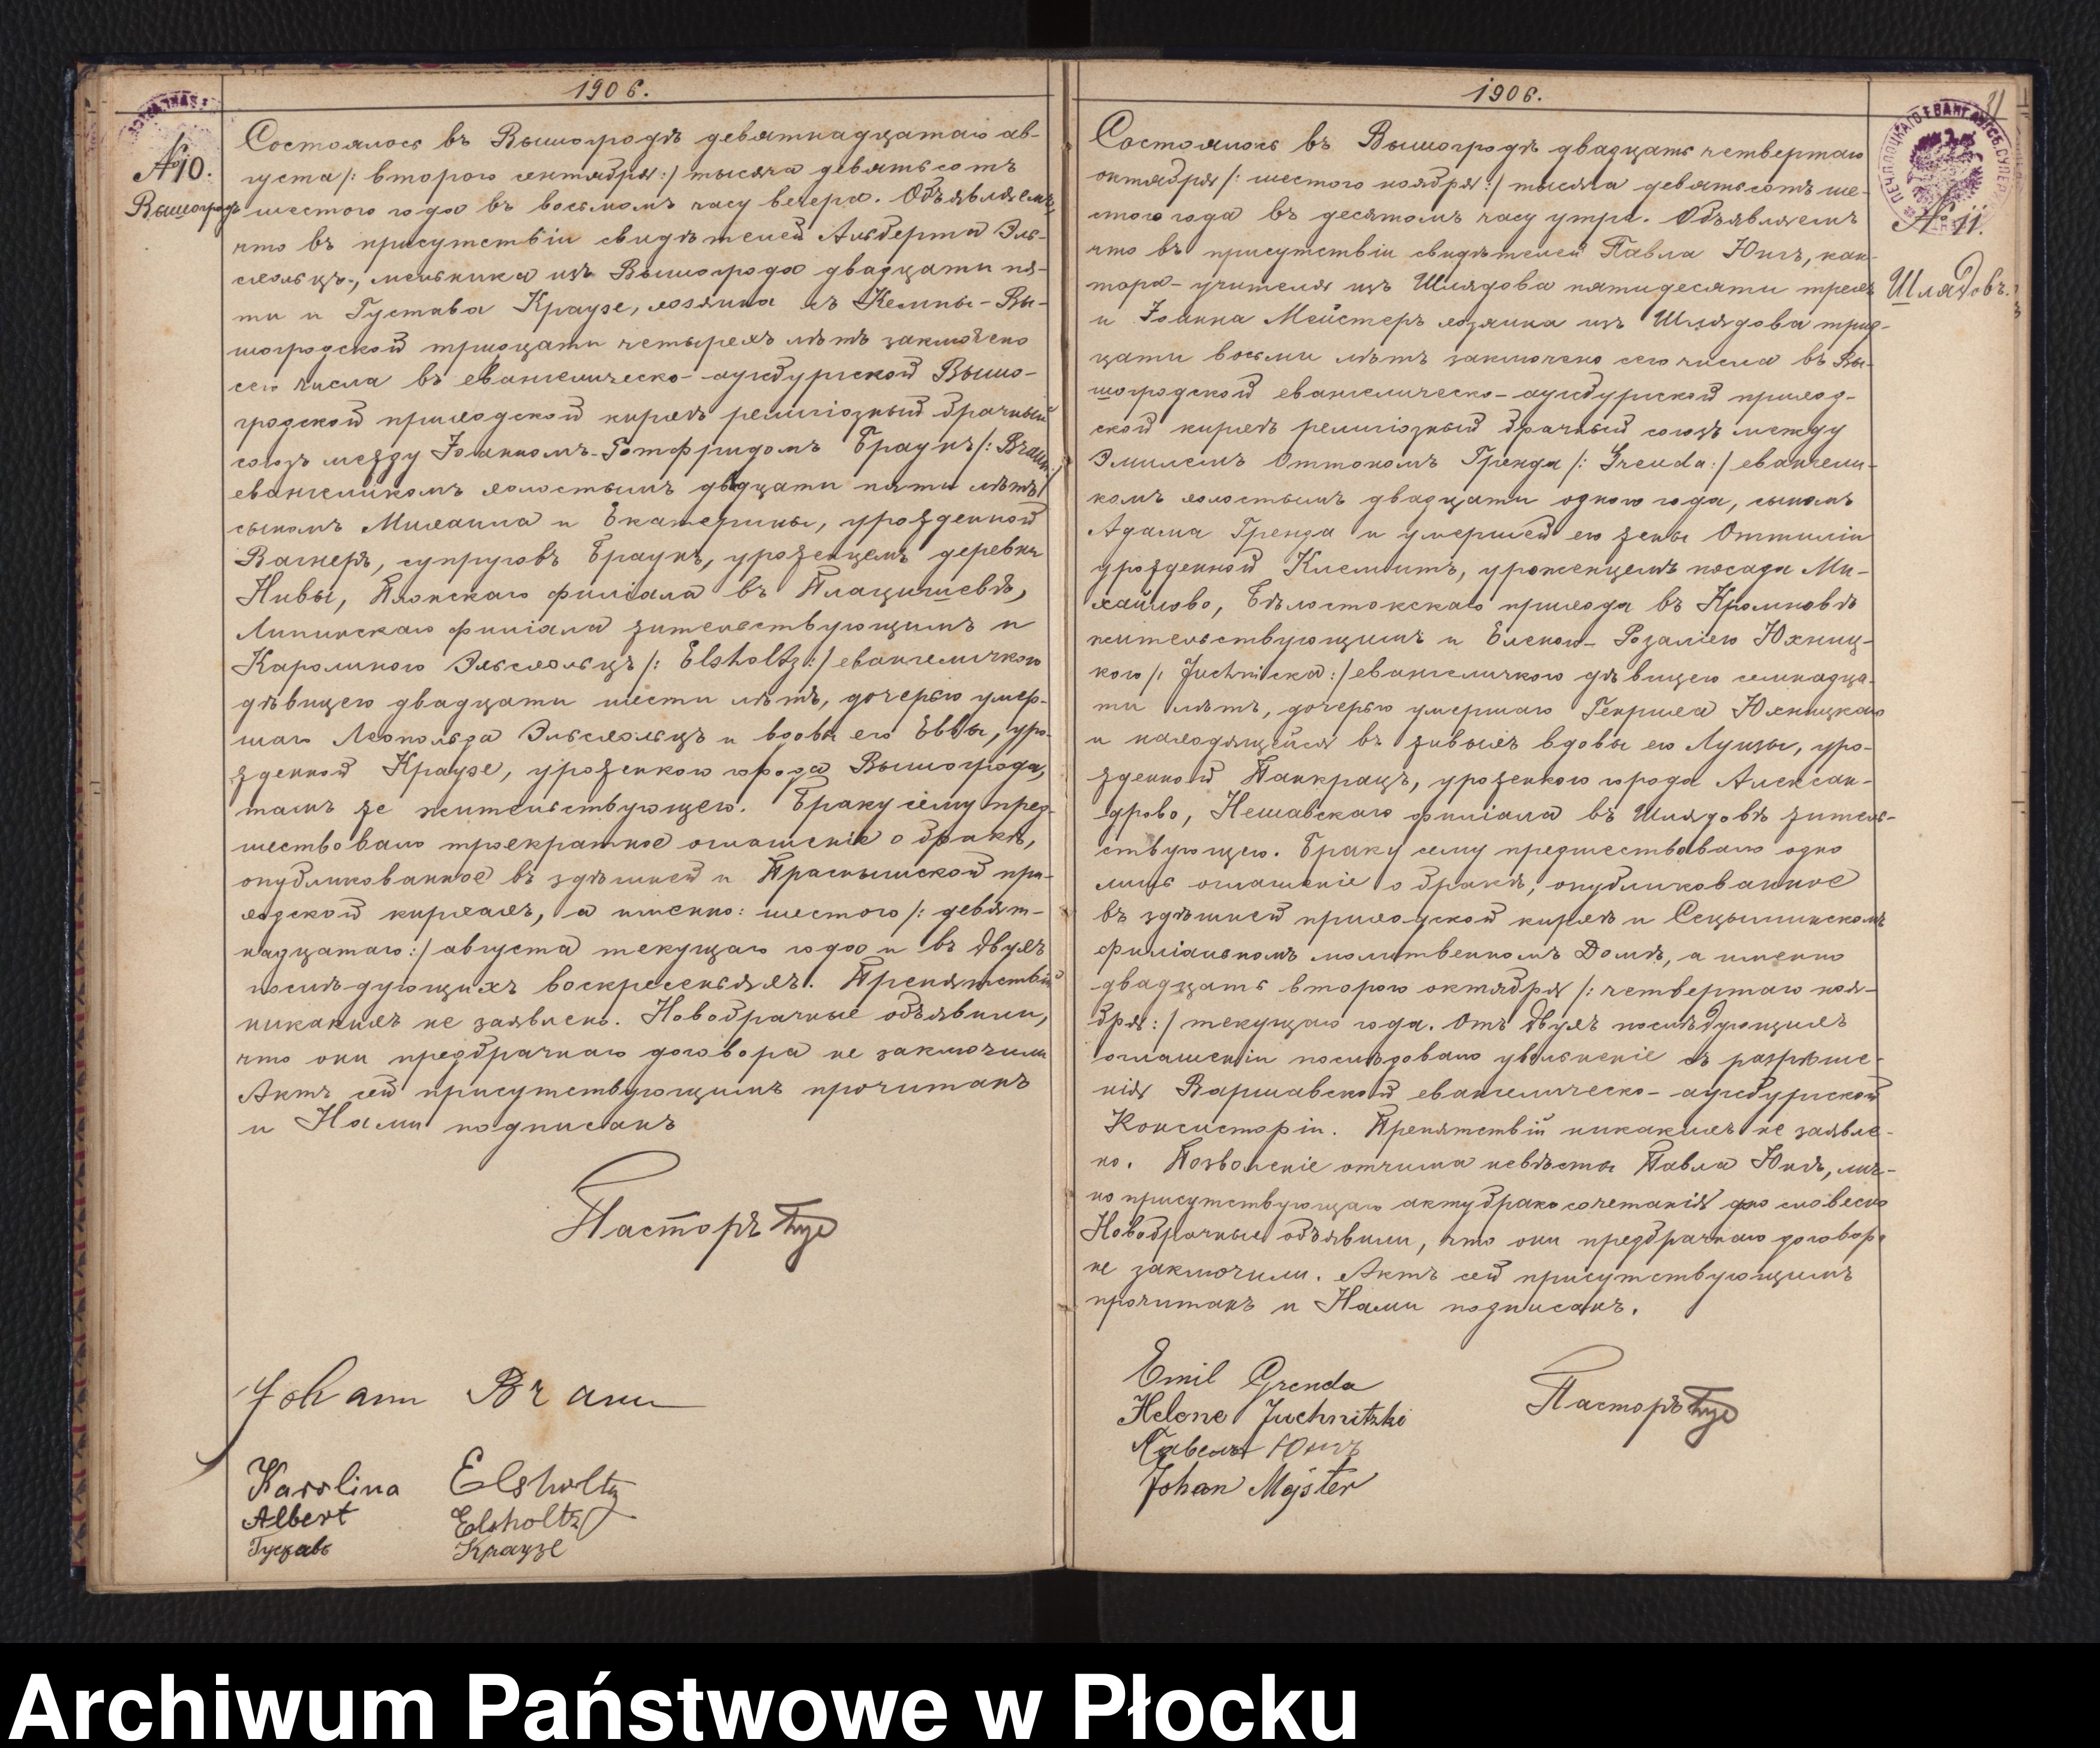 1906.
№10.
Вышогродъ
Состоялось въ Вышогродѣ девятнадцатаго ав-
густа /: второго сентября :/ тысяча девятьсотъ
шестого года въ восьмомъ часу вечера. Объявляемъ,
что въ присутствіи свидѣтелей Альберта Эль-
схольцъ, мельника изъ Вышогрода двадцати пя-
ти и Густава Краузе, хозяина съ Кемпы-Вы-
шогродской тридцати четырехъ лѣтъ заключено
сего числа въ евангелическо-аугсбургской Вышо-
гродской приходской кирхѣ религіозный брачный
союзъ между Іоанномъ-Готфридомъ Браунъ /: Braun :/
евангеликомъ холостымъ двадцати пяти лѣтъ,
сыномъ Михаила и Екатерины, урожденной
Вагнеръ, супруговъ Браунъ, уроженцемъ деревни
Нивы, Плонскаго филіала въ
Липинскаго филіала жительствующимъ и
Каролиною Эльсхольцъ /: Elsholtz :/ евангеличкою
дѣвицею двадцати шести лѣтъ, дочерью умер-
шаго Леопольда Эльсхольцъ и вдовы его Еввы, уро-
жденной Краузе, уроженкою города Вышогрода,
тамъ же жительствующею. Браку сему пред-
шествовало троекратное оглашеніе о бракѣ,
опубликованное въ здѣшней и Праснышской при-
ходской кирхахъ, а именно: шестого /: девят-
надцатаго :/ августа текущаго года и въ двухъ
послѣдующихъ воскресеньяхъ. Препятствій
никакихъ не заявлено. Новобрачные объявили,
что они предбрачнаго договора не заключили
Актъ сей присутствующимъ прочитанъ
и Нами подписанъ
Пасторъ
Johann Braun
Karolina Elsholtz
Albert Elsholtz
Густавъ Краузе
1906.
31
№ 11.
Шлядовъ.
Состоялось въ Вышогродѣ двадцать четвертаго
октября /: шестого ноября :/ тысяча девятьсотъ ше-
стого года въ десятомъ часу утра. Объявляемъ
что въ присутствіи свидѣтелей Павла Юнгъ, кан-
тора-учителя изъ Шлядова пятидесяти трехъ
и Іоанна Мейстеръ хозяина изъ Шлядова трид-
цати восьми лѣтъ заключено сего числа въ Вы-
шогродской евангелическо-аугсбургской приход-
ской кирхѣ религіозный брачный союзъ между
Эмилемъ Оттономъ Гренда /: Grenda :/ евангели-
комъ холостымъ двадцати одного года, сыномъ
Адама Гренда и умершей его жены Оттиліи
урожденной Клемитъ, уроженцемъ посада Ми-
хайлово, Бѣлостокскаго прихода въ Кромновѣ
жительствующимъ и Еленою-Розаліею Юхниц-
кою /: Juchnicka :/ евангеличкою дѣвицею семнадца-
ти лѣтъ, дочерью умершаго Генриха Юхницкаго
и находящейся въ живыхъ вдовы его Луизы, уро-
жденной Панкрацъ, уроженкою города Алексан-
дрово, Нешавскаго филіала въ Шлядовѣ житель-
ствующею. Браку сему предшествовало одно
лишь оглашеніе о бракѣ, опубликованное
въ здѣшней приходской кирхѣ и Сецыминскомъ
филіальномъ молитвенномъ Домѣ, а именно
двадцать второго октября /: четвертаго ноя-
бря :/ текущаго года. Отъ двухъ послѣдующихъ
оглашеніи послѣдовало увольненіе съ разрѣше-
нія Варшавской евангелическо-аугсбургской
Консисторіи. Препятствій никакихъ не заявле-
но. Позволеніе отчима невѣсты Павла Юнгъ, лич-
но присутствующаго акту бракосочетанія дано словесно
Новобрачные объявили, что они предбрачнаго договора
не заключили. Актъ сей присутствующимъ
прочитанъ и Нами подписанъ.
Emil Grenda
Helene Juchnitzki
Павелъ Юнгъ
Johan Majster
Пасторъ
Archiwum Państwowe w Płocku